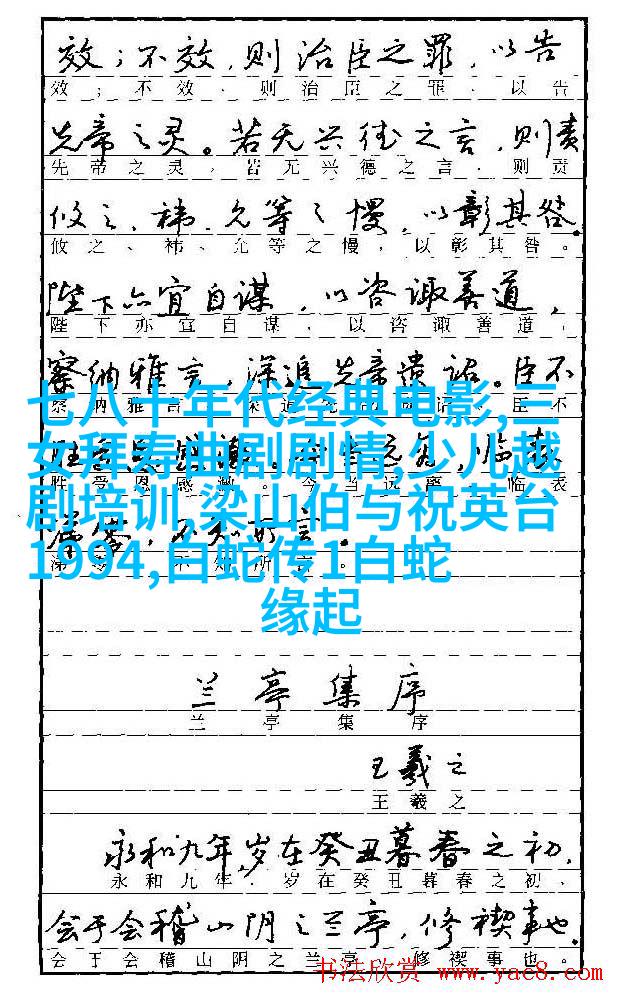 效；不效，则治臣之罪，以告
效；不效、则治臣之罪、以告
先帝之灵。若无兴德之言，则责
先帝之灵，若无兴德之言、则责
攸之、祎、允等之慢，以彰其咎。
攸之、祎、允等之慢，以彰其咎。
陛下亦宜自谋，以咨诹善道，
陛下亦宜自谋，以咨诹善道，
察纳雅言，深追先帝遗诏。臣不
察纳雅言
臣不
七八十年代经典电影,三
女拜寿曲剧剧情,少儿越
剧培训,梁山伯与祝英台
1994,白蛇传1白蛇
缘起
胜受恩感激。今当远离，临表
涕零，不知所言。
兰亭集序
兰亭集序
王羲之
王羲之
永和九年,岁在癸丑暮春之初,
永和九年，岁在癸丑暮春之初、
会于会稽山阴之兰亭，修禊事也。
会于会稽山阴之兰亭，修禊事也。
书法欣赏 www.yac8.com